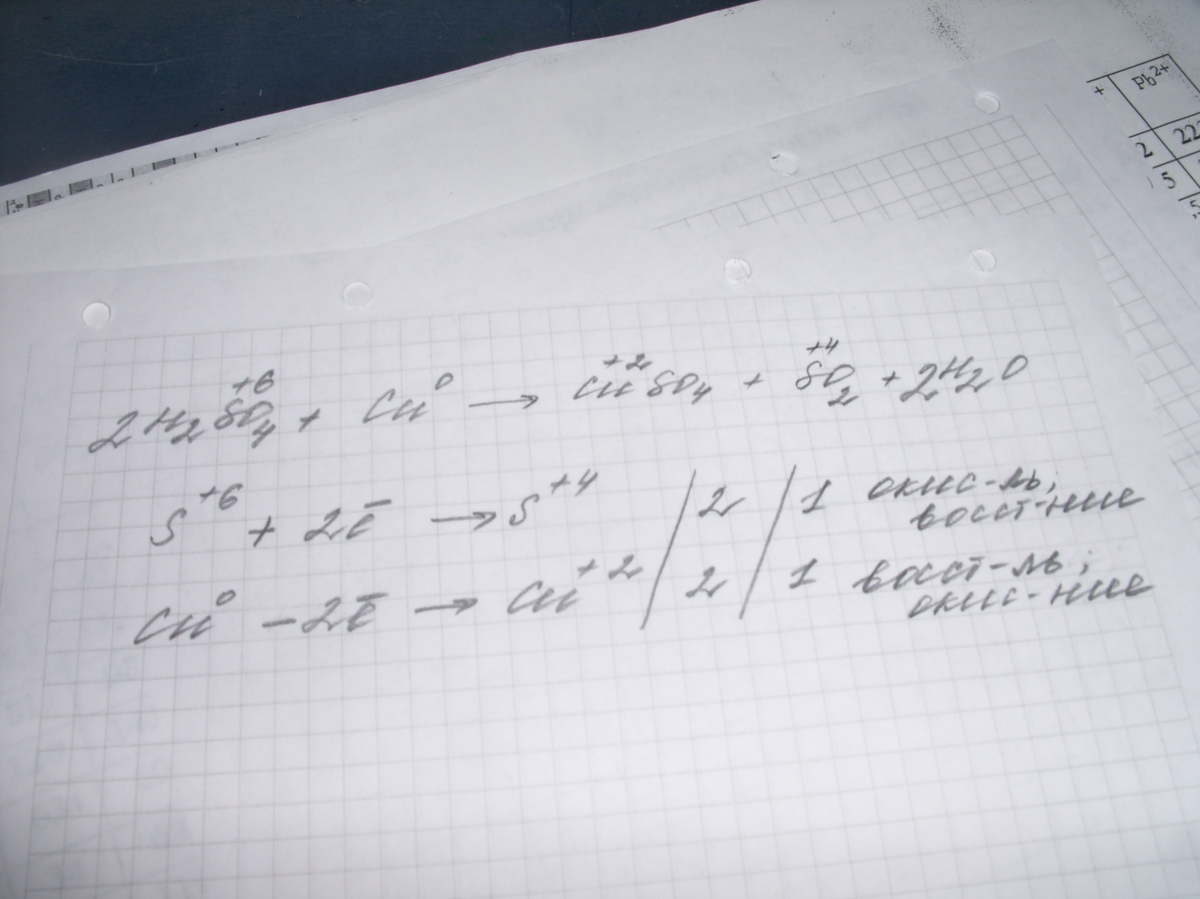 Pb²⁺
+
2 22
5
2H₂S⁺⁶O₄ + Cu⁰ → Cu⁺²SO₄ + S⁺⁴O₂ + 2H₂O
S⁺⁶ + 2ē → S⁺⁴ / 2 / 1 окис-ль;
восст-ние
Cu⁰ – 2ē → Cu⁺² / 2 / 1 восст-ль;
окис-ние